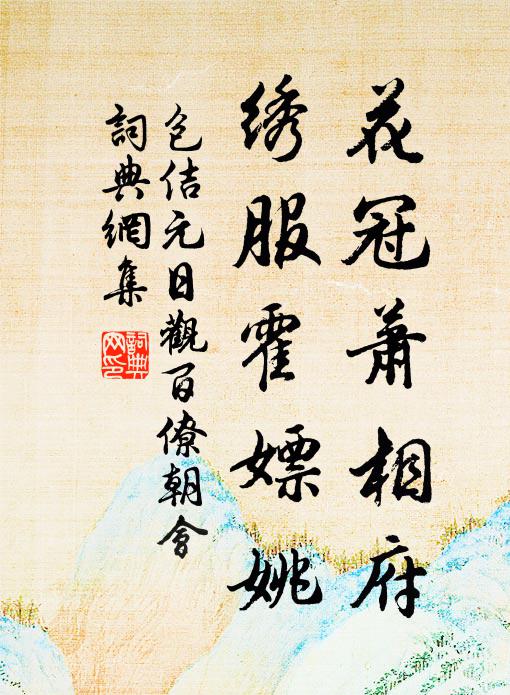 花冠萧相府
绣服霍嫖姚
包佶元日觀百僚朝會
詞典網集
詞典网印